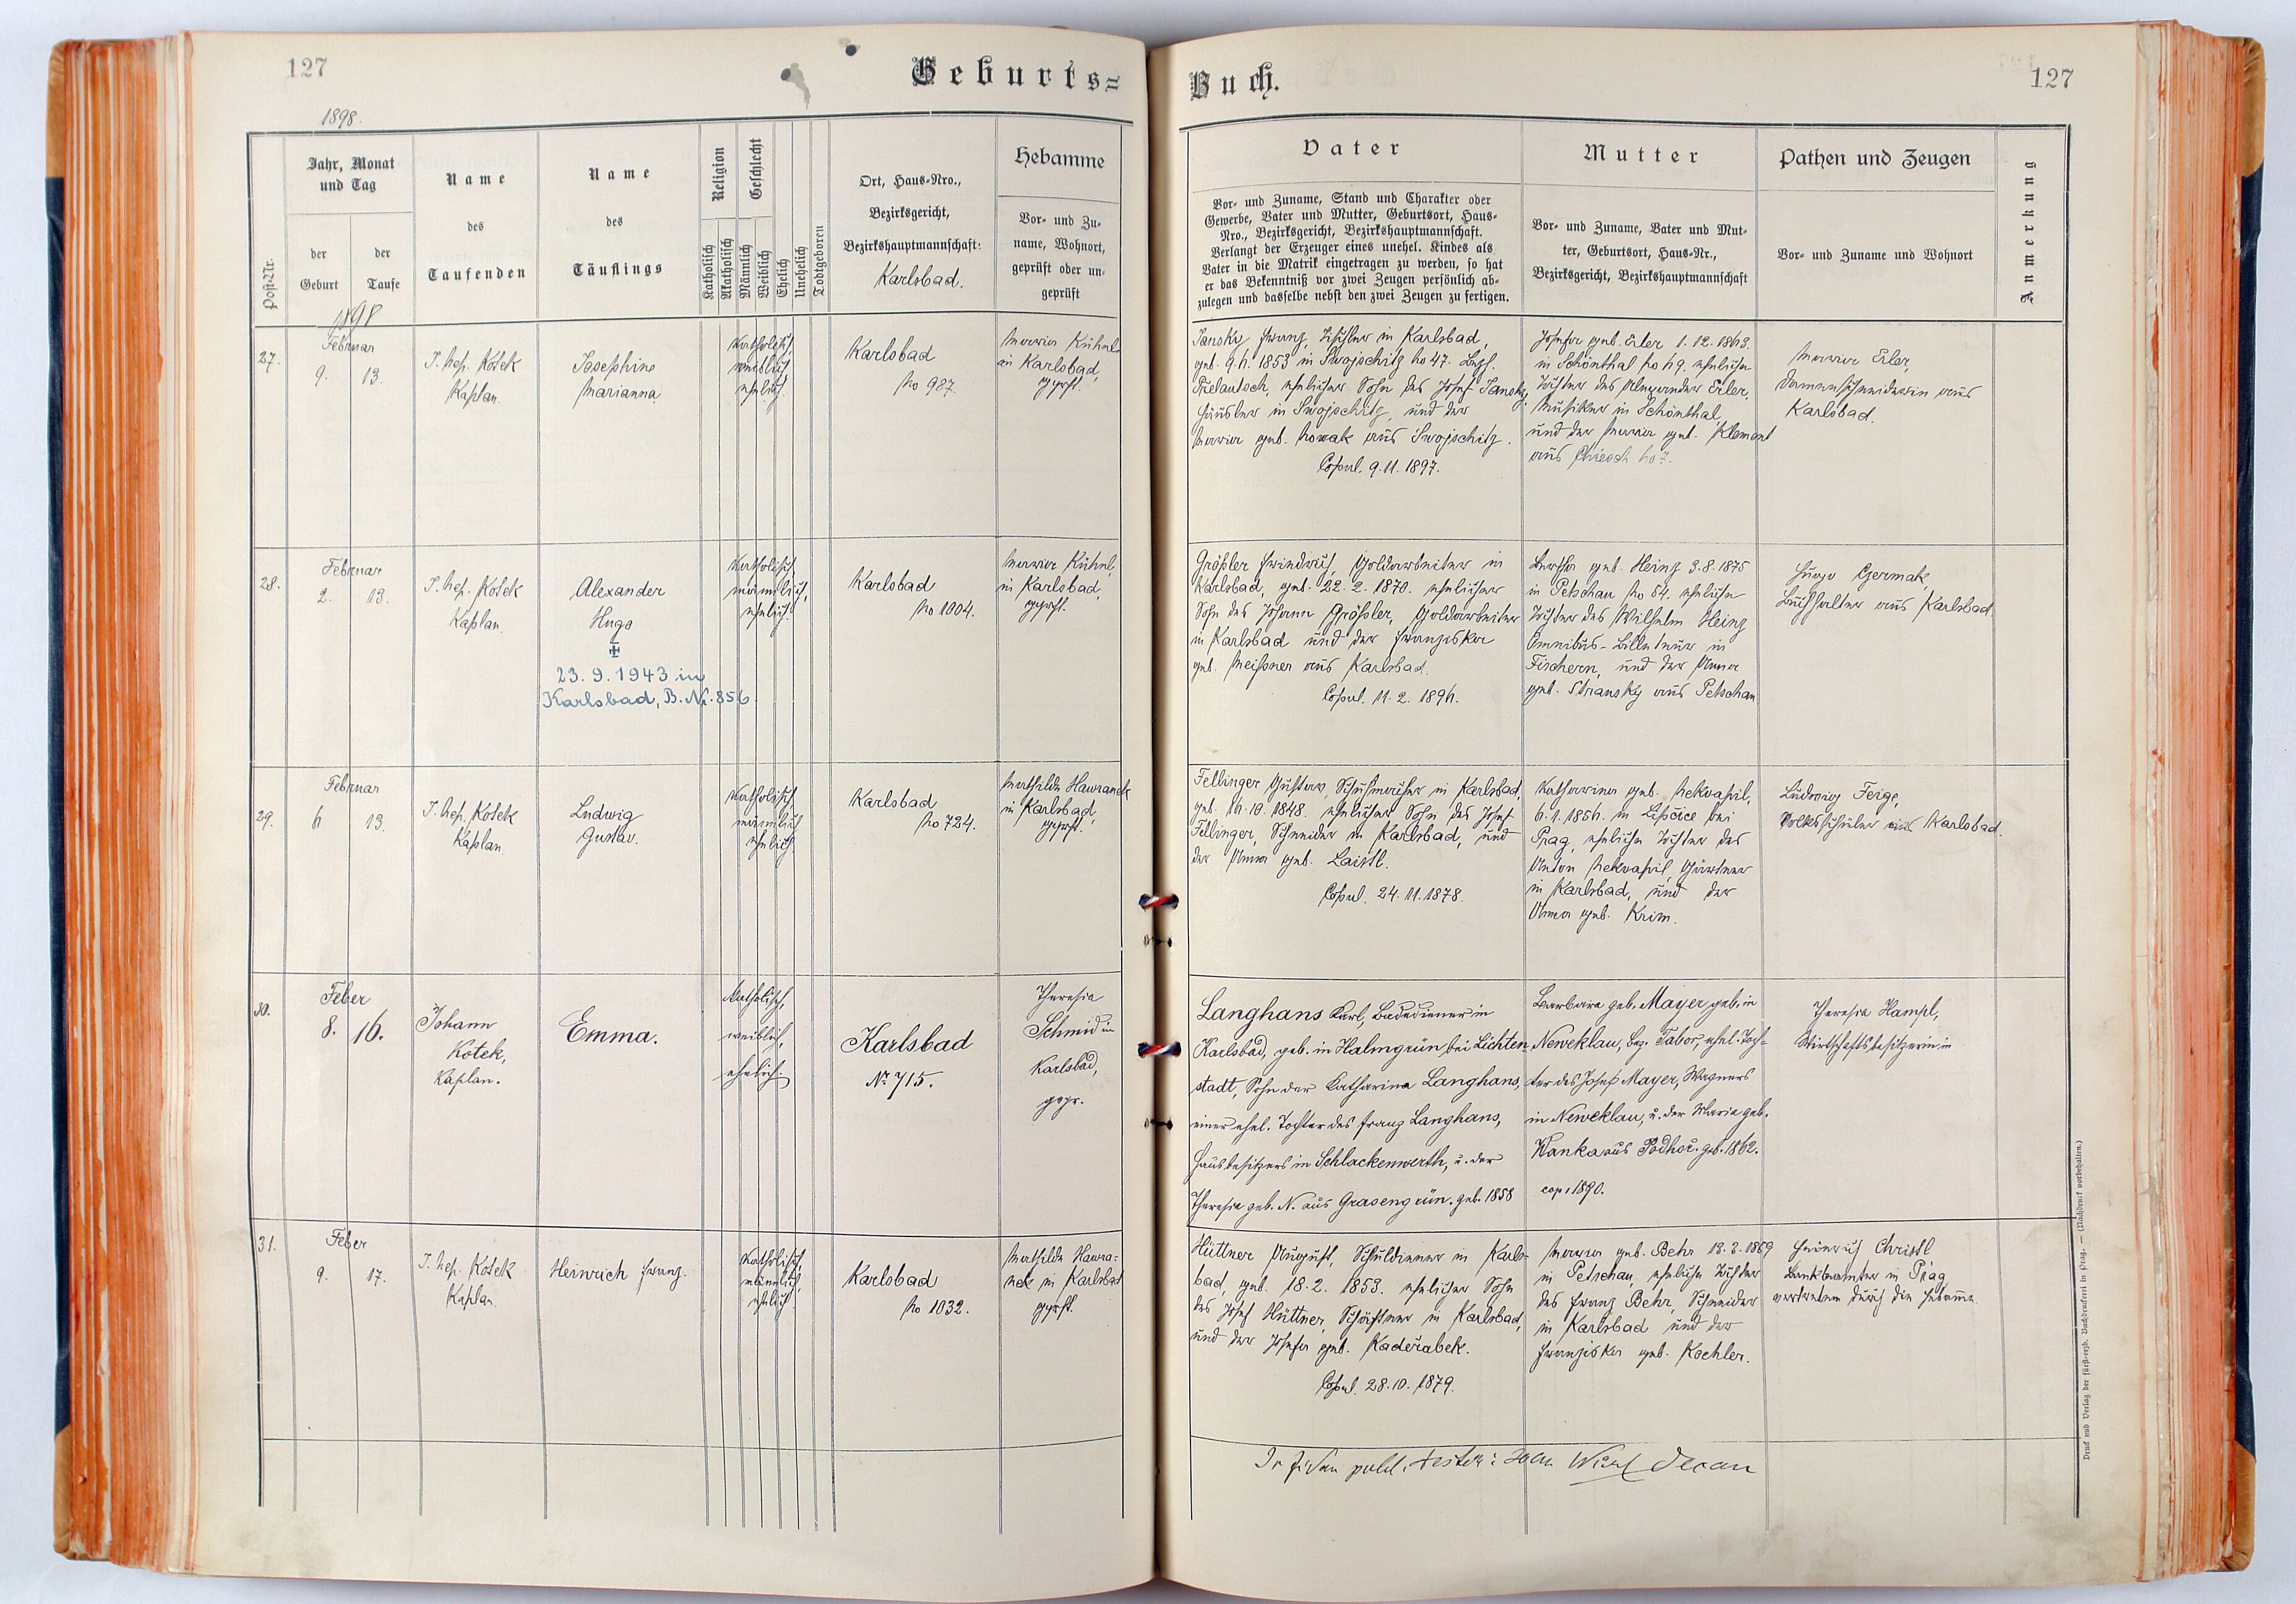 127
Geburts=
1898.
Post-Nr.
Jahr, Monat
und Tag
der
Geburt
der
Taufe
Name
des
Taufenden
Name
des
Täuflings
Religion
Geschlecht
Katholisch
Akatholisch
Männlich
Weiblich
Ehelich
Unehelich
Todtgeboren
Ort, Haus=Nro.,
Bezirksgericht,
Bezirkshauptmannschaft:
Karlsbad.
Hebamme
Vor= und Zu=
name, Wohnort,
geprüft oder un=
geprüft
1898
27.
Februar
9. 13.
J. Nep. Kotek
Kaplan.
Josephine
Marianna
Katholisch
weiblich
ehelich.
Karlsbad
No 987.
Maria Kühnl
in Karlsbad,
geprft.
28.
Februar
2. 13.
J. Nep. Kotek
Kaplan.
Alexander
Hugo
23. 9. 1943 in
Karlsbad, B. Nr. 856
Katholisch,
männlich,
ehelich.
Karlsbad
No 1004.
Maria Kühnl,
in Karlsbad,
geprft.
29.
Februar
6 13.
J. Nep. Kotek
Kaplan
Ludwig
Gustav.
Katholisch
männlich
ehelich.
Karlsbad
No 724.
Mathilde Hawranek
in Karlsbad,
geprft.
30.
Feber
8. 16.
Johann
Kotek,
Kaplan.
Emma.
Katholisch,
weiblich,
ehelich.
Karlsbad
No 715.
Theresia
Schmid in
Karlsbad,
gepr.
31.
Feber
9. 17.
J. Nep. Kotek
Kaplan.
Heinrich Franz.
Katholisch,
männlich,
ehelich.
Karlsbad
No 1032.
Mathilde Hawra=
nek in Karlsbad
geprft.
Buch.
127
Vater
Vor= und Zuname, Stand und Charakter oder
Gewerbe, Vater und Mutter, Geburtsort, Haus=
Nro., Bezirksgericht, Bezirkshauptmannschaft.
Verlangt der Erzeuger eines unehel. Kindes als
Vater in die Matrik eingetragen zu werden, so hat
er das Bekenntniß vor zwei Zeugen persönlich ab=
zulegen und dasselbe nebst den zwei Zeugen zu fertigen.
Mutter
Vor= und Zuname, Vater und Mut=
ter, Geburtsort, Haus=Nr.,
Bezirksgericht, Bezirkshauptmannschaft
Pathen und Zeugen
Vor= und Zuname und Wohnort
Anmerkung
Jansky Franz, Tischler in Karlsbad,
geb. 9.4. 1853 in Swojschitz No 47. Bezh.
Prelautsch, ehelicher Sohn des Josef Jansky,
Häusler in Swojschitz, und der
Maria geb. Nowak aus Swojschitz.
Copul. 9.11. 1897.
Josefa geb. Erler 1. 12. 1863.
in Schönthal No 49. eheliche
Tochter des Alexander Erler,
Musiker in Schönthal,
und der Maria geb. Klement
aus Chiesch No 7.
Maria Erler,
Damenschneiderin aus
Karlsbad.
Größler Friedrich, Goldarbeiter in
Karlsbad, geb. 22. 2. 1870. ehelicher
Sohn des Johann Größler, Goldarbeiter
in Karlsbad und der Franziska
geb. Meißner aus Karlsbad.
Copul. 11. 2. 1896.
Bertha geb. Heinz 3. 8. 1875
in Petschau No 54. eheliche
Tochter des Wilhelm Heinz
Omnibus-Billeteur in
Fischern, und der Anna
geb. Stransky aus Petschau
Hugo Czermak,
Buchhalter aus Karlsbad.
Fellinger Gustav, Schuhmacher in Karlsbad,
geb. 16. 10. 1848. ehelicher Sohn des Josef
Fellinger, Schneider in Karlsbad, und
der Anna geb. Laistl.
Copul. 24. 11. 1878.
Katharina geb. Nekvapil,
6. 1. 1856. in Lipčice bei
Prag, eheliche Tochter des
Anton Nekvapil, Gärtner
in Karlsbad, und der
Anna geb. Krim.
Ludwig Feige,
Volksschüler aus Karlsbad.
Langhans Karl, Badediener in
Karlsbad, geb. in Halmgrün bei Lichten=
stadt, Sohn der Katharina Langhans,
einer ehel. Tochter des Franz Langhans,
Hausbesitzers in Schlackenwerth, u. der
Theresia geb. N. aus Grasengrün. geb. 1858
Barbara geb. Mayer geb. in
Neweklau, Bez. Tabor, ehel. Toch=
ter des Josef Mayer, Wagners
in Neweklau, u. der Maria geb.
Wanka aus Podhoř. geb. 1862.
cop. 1890.
Theresia Hampl,
Wirtschaftsbesitzerin in
Hüttner August, Schuldiener in Karls=
bad, geb. 18. 2. 1853. ehelicher Sohn
des Josef Hüttner, Schaffner in Karlsbad,
und der Josefa geb. Kaderabek.
Copul. 28. 10. 1879.
Maria geb. Behr 13. 3. 1859
in Petschau, eheliche Tochter
des Franz Behr, Schneider
in Karlsbad und der
Franziska geb. Kochler.
Heinrich Christl
Bankbeamter in Prag,
vertreten durch die Hebamme.
Decan
Druck und Verlag der fürst-erzb. Buchdruckerei in Prag. — (Nachdruck vorbehalten.)